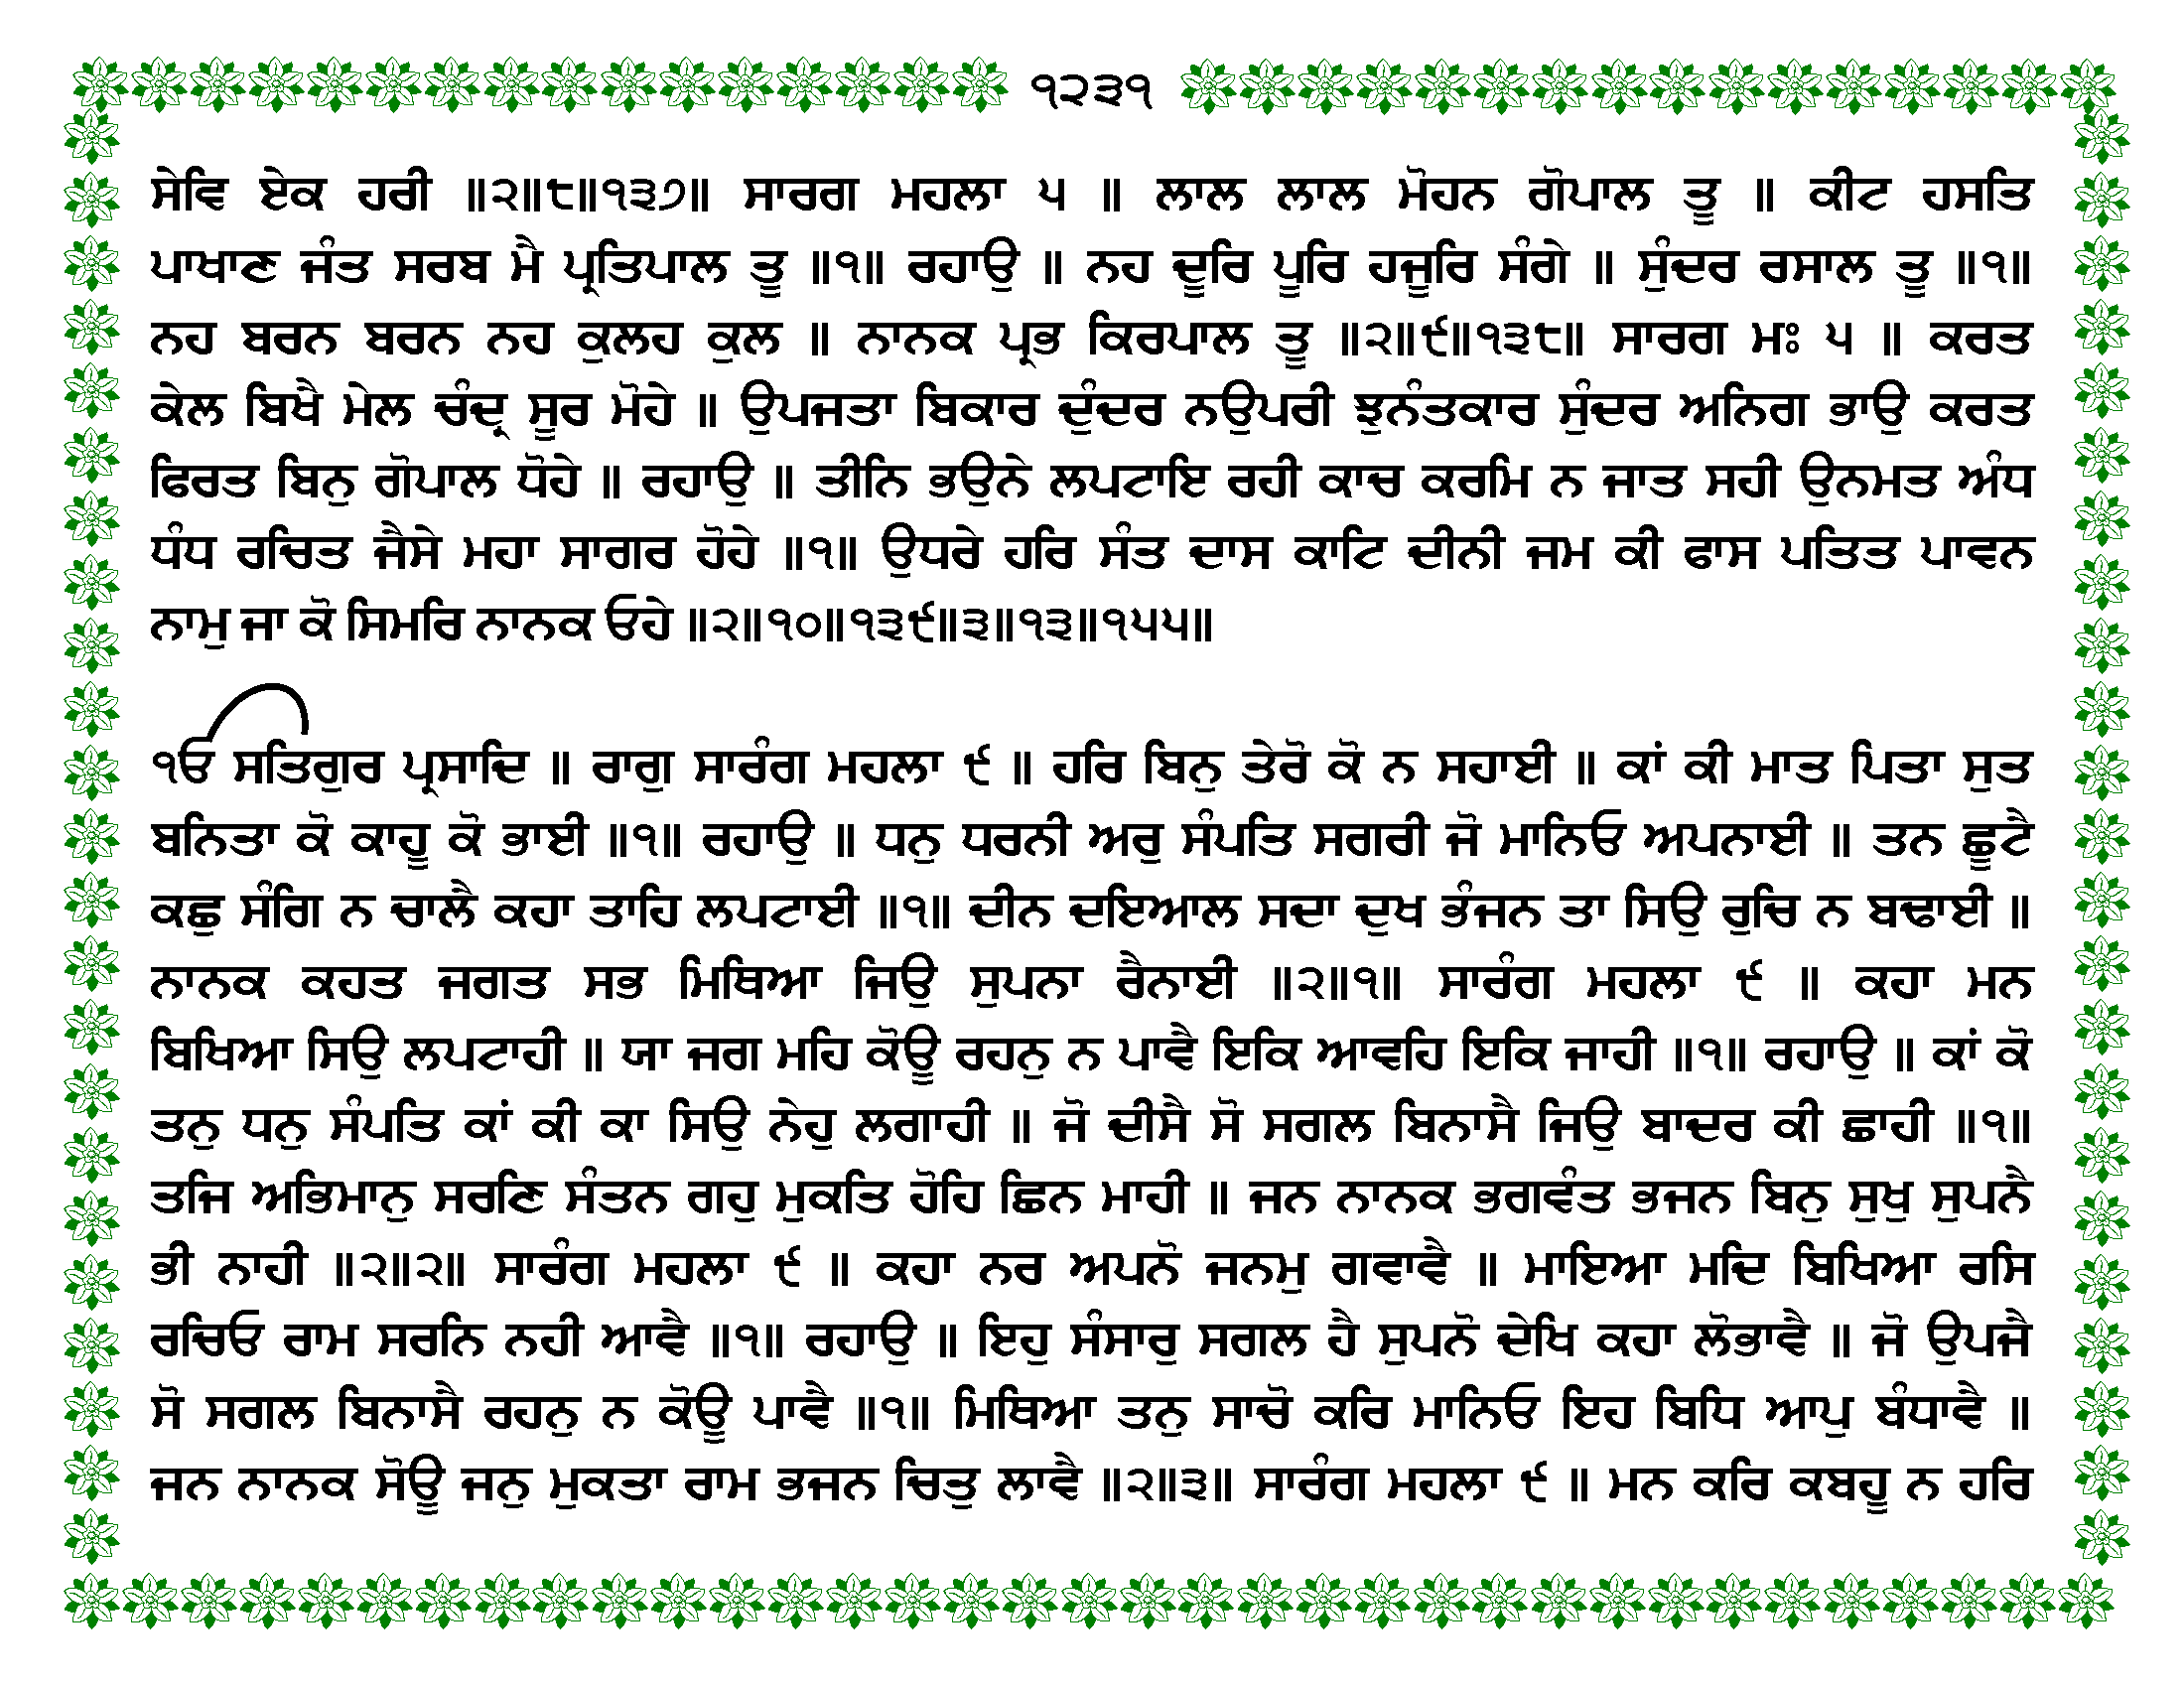 ੧੨੩੧
ਸੇਵਿ ਏਕ ਹਰੀ ॥੨॥੮॥੧੩੭॥ ਸਾਰਗ ਮਹਲਾ ੫ ॥ ਲਾਲ ਲਾਲ ਮੋਹਨ ਗੋਪਾਲ ਤੂ ॥ ਕੀਟ ਹਸਤਿ
ਪਾਖਾਣ ਜੰਤ ਸਰਬ ਮੈ ਪ੍ਰਤਿਪਾਲ ਤੂ ॥੧॥ ਰਹਾਉ ॥ ਨਹ ਦੂਰਿ ਪੂਰਿ ਹਜੂਰਿ ਸੰਗੇ ॥ ਸੁੰਦਰ ਰਸਾਲ ਤੂ ॥੧॥
ਨਹ ਬਰਨ ਬਰਨ ਨਹ ਕੁਲਹ ਕੁਲ ॥ ਨਾਨਕ ਪ੍ਰਭ ਕਿਰਪਾਲ ਤੂ ॥੨॥੯॥੧੩੮॥ ਸਾਰਗ ਮਃ ੫ ॥ ਕਰਤ
ਕੇਲ ਬਿਖੈ ਮੇਲ ਚੰਦ੍ਰ ਸੂਰ ਮੋਹੇ ॥ ਉਪਜਤਾ ਬਿਕਾਰ ਦੁੰਦਰ ਨਉਪਰੀ ਝੁਨੰਤਕਾਰ ਸੁੰਦਰ ਅਨਿਗ ਭਾਉ ਕਰਤ
ਫਿਰਤ ਬਿਨੁ ਗੋਪਾਲ ਧੋਹੇ ॥ ਰਹਾਉ ॥ ਤੀਨਿ ਭਉਨੇ ਲਪਟਾਇ ਰਹੀ ਕਾਚ ਕਰਮਿ ਨ ਜਾਤ ਸਹੀ ਉਨਮਤ ਅੰਧ
ਧੰਧ ਰਚਿਤ ਜੈਸੇ ਮਹਾ ਸਾਗਰ ਹੋਹੇ ॥੧॥ ਉਧਰੇ ਹਰਿ ਸੰਤ ਦਾਸ ਕਾਟਿ ਦੀਨੀ ਜਮ ਕੀ ਫਾਸ ਪਤਿਤ ਪਾਵਨ
ਨਾਮੁ ਜਾ ਕੋ ਸਿਮਰਿ ਨਾਨਕ ਓਹੇ ॥੨॥੧੦॥੧੩੯॥੩॥੧੩॥੧੫੫॥
ੴ ਸਤਿਗੁਰ ਪ੍ਰਸਾਦਿ ॥ ਰਾਗੁ ਸਾਰੰਗ ਮਹਲਾ ੯ ॥ ਹਰਿ ਬਿਨੁ ਤੇਰੋ ਕੋ ਨ ਸਹਾਈ ॥ ਕਾਂ ਕੀ ਮਾਤ ਪਿਤਾ ਸੁਤ
ਬਨਿਤਾ ਕੋ ਕਾਹੂ ਕੋ ਭਾਈ ॥੧॥ ਰਹਾਉ ॥ ਧਨੁ ਧਰਨੀ ਅਰੁ ਸੰਪਤਿ ਸਗਰੀ ਜੋ ਮਾਨਿਓ ਅਪਨਾਈ ॥ ਤਨ ਛੂਟੈ
ਕਛੁ ਸੰਗਿ ਨ ਚਾਲੈ ਕਹਾ ਤਾਹਿ ਲਪਟਾਈ ॥੧॥ ਦੀਨ ਦਇਆਲ ਸਦਾ ਦੁਖ ਭੰਜਨ ਤਾ ਸਿਉ ਰੁਚਿ ਨ ਬਢਾਈ ॥
ਨਾਨਕ ਕਹਤ ਜਗਤ ਸਭ ਮਿਥਿਆ ਜਿਉ ਸੁਪਨਾ ਰੈਨਾਈ ॥੨॥੧॥ ਸਾਰੰਗ ਮਹਲਾ ੯ ॥ ਕਹਾ ਮਨ
ਬਿਖਿਆ ਸਿਉ ਲਪਟਾਹੀ ॥ ਯਾ ਜਗ ਮਹਿ ਕੋਊ ਰਹਨੁ ਨ ਪਾਵੈ ਇਕਿ ਆਵਹਿ ਇਕਿ ਜਾਹੀ ॥੧॥ ਰਹਾਉ ॥ ਕਾਂ ਕੋ
ਤਨੁ ਧਨੁ ਸੰਪਤਿ ਕਾਂ ਕੀ ਕਾ ਸਿਉ ਨੇਹੁ ਲਗਾਹੀ ॥ ਜੋ ਦੀਸੈ ਸੋ ਸਗਲ ਬਿਨਾਸੈ ਜਿਉ ਬਾਦਰ ਕੀ ਛਾਹੀ ॥੧॥
ਤਜਿ ਅਭਿਮਾਨੁ ਸਰਣਿ ਸੰਤਨ ਗਹੁ ਮੁਕਤਿ ਹੋਹਿ ਛਿਨ ਮਾਹੀ ॥ ਜਨ ਨਾਨਕ ਭਗਵੰਤ ਭਜਨ ਬਿਨੁ ਸੁਖੁ ਸੁਪਨੈ
ਭੀ ਨਾਹੀ ॥੨॥੨॥ ਸਾਰੰਗ ਮਹਲਾ ੯ ॥ ਕਹਾ ਨਰ ਅਪਨੋ ਜਨਮੁ ਗਵਾਵੈ ॥ ਮਾਇਆ ਮਦਿ ਬਿਖਿਆ ਰਸਿ
ਰਚਿਓ ਰਾਮ ਸਰਨਿ ਨਹੀ ਆਵੈ ॥੧॥ ਰਹਾਉ ॥ ਇਹੁ ਸੰਸਾਰੁ ਸਗਲ ਹੈ ਸੁਪਨੋ ਦੇਖਿ ਕਹਾ ਲੋਭਾਵੈ ॥ ਜੋ ਉਪਜੈ
ਸੋ ਸਗਲ ਬਿਨਾਸੈ ਰਹਨੁ ਨ ਕੋਊ ਪਾਵੈ ॥੧॥ ਮਿਥਿਆ ਤਨੁ ਸਾਚੋ ਕਰਿ ਮਾਨਿਓ ਇਹ ਬਿਧਿ ਆਪੁ ਬੰਧਾਵੈ ॥
ਜਨ ਨਾਨਕ ਸੋਊ ਜਨੁ ਮੁਕਤਾ ਰਾਮ ਭਜਨ ਚਿਤੁ ਲਾਵੈ ॥੨॥੩॥ ਸਾਰੰਗ ਮਹਲਾ ੯ ॥ ਮਨ ਕਰਿ ਕਬਹੂ ਨ ਹਰਿ